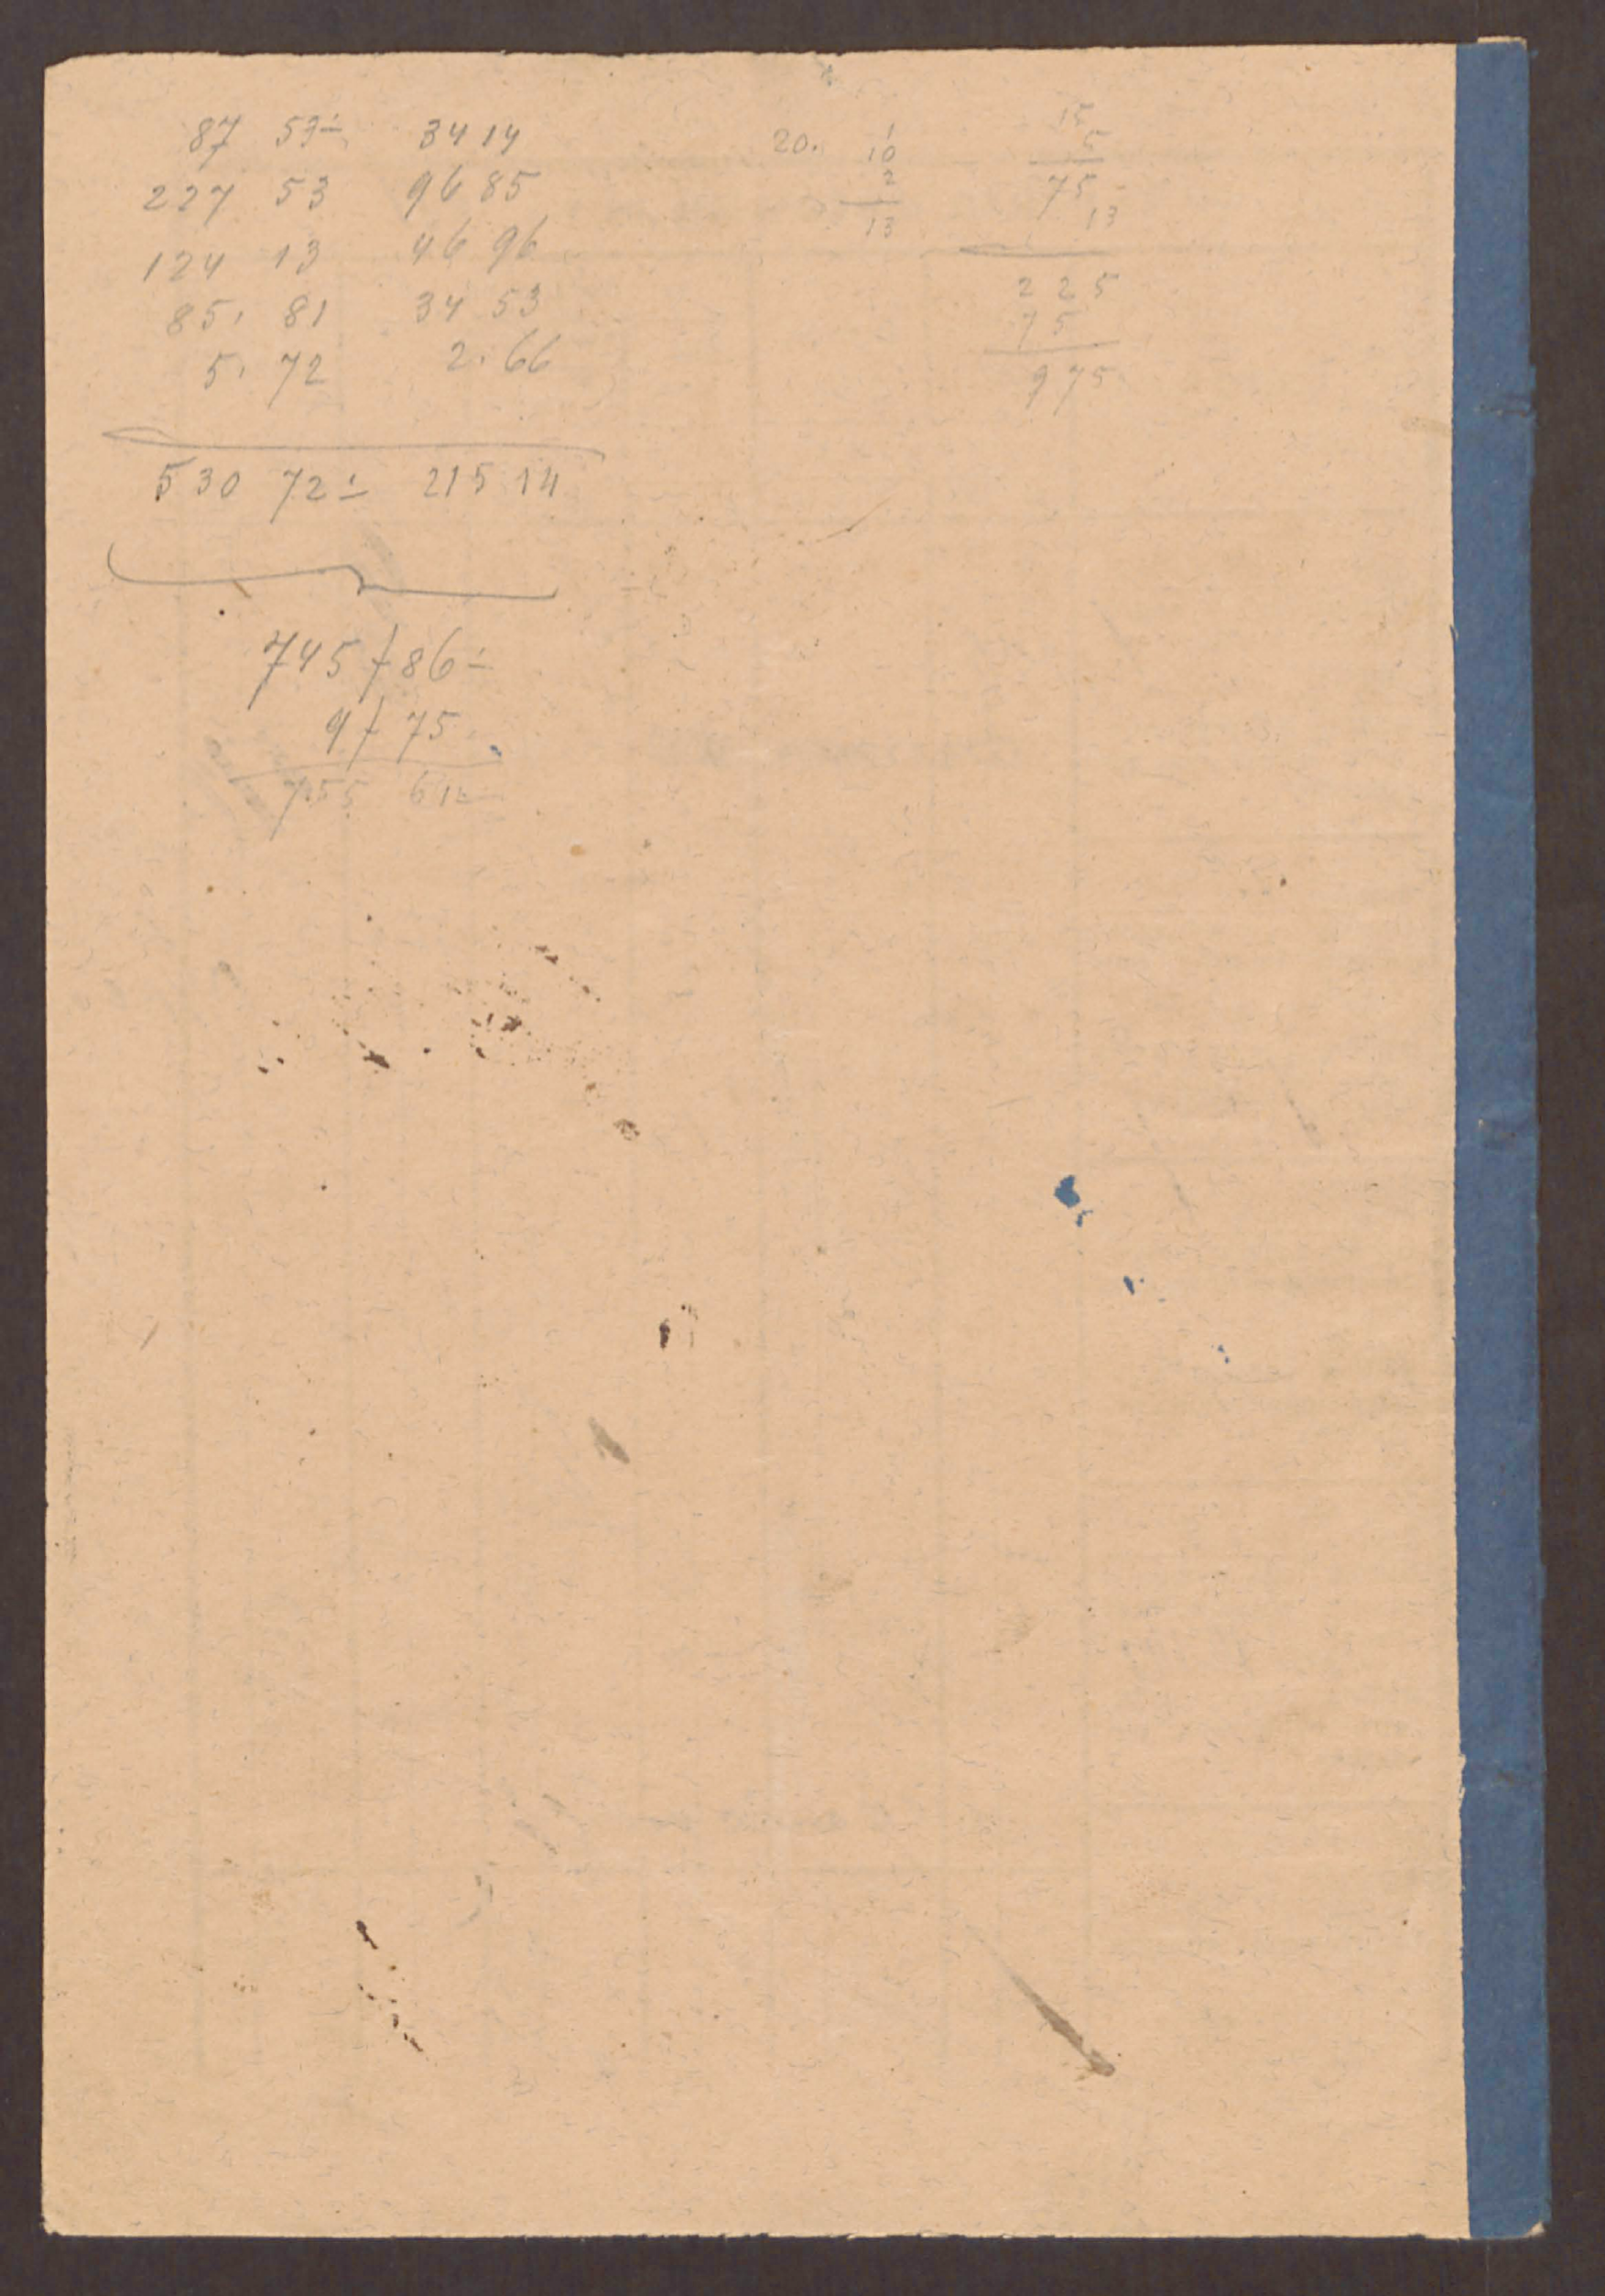 87 53÷ 34 14
227 53 96 85
124 13 46 96
85, 81 34 53
5, 72 2. 66
530 72÷ 215 14
745 / 86÷
9 / 75
755 61÷
20. 1
10
2
13
15
5
75
13
225
75
975